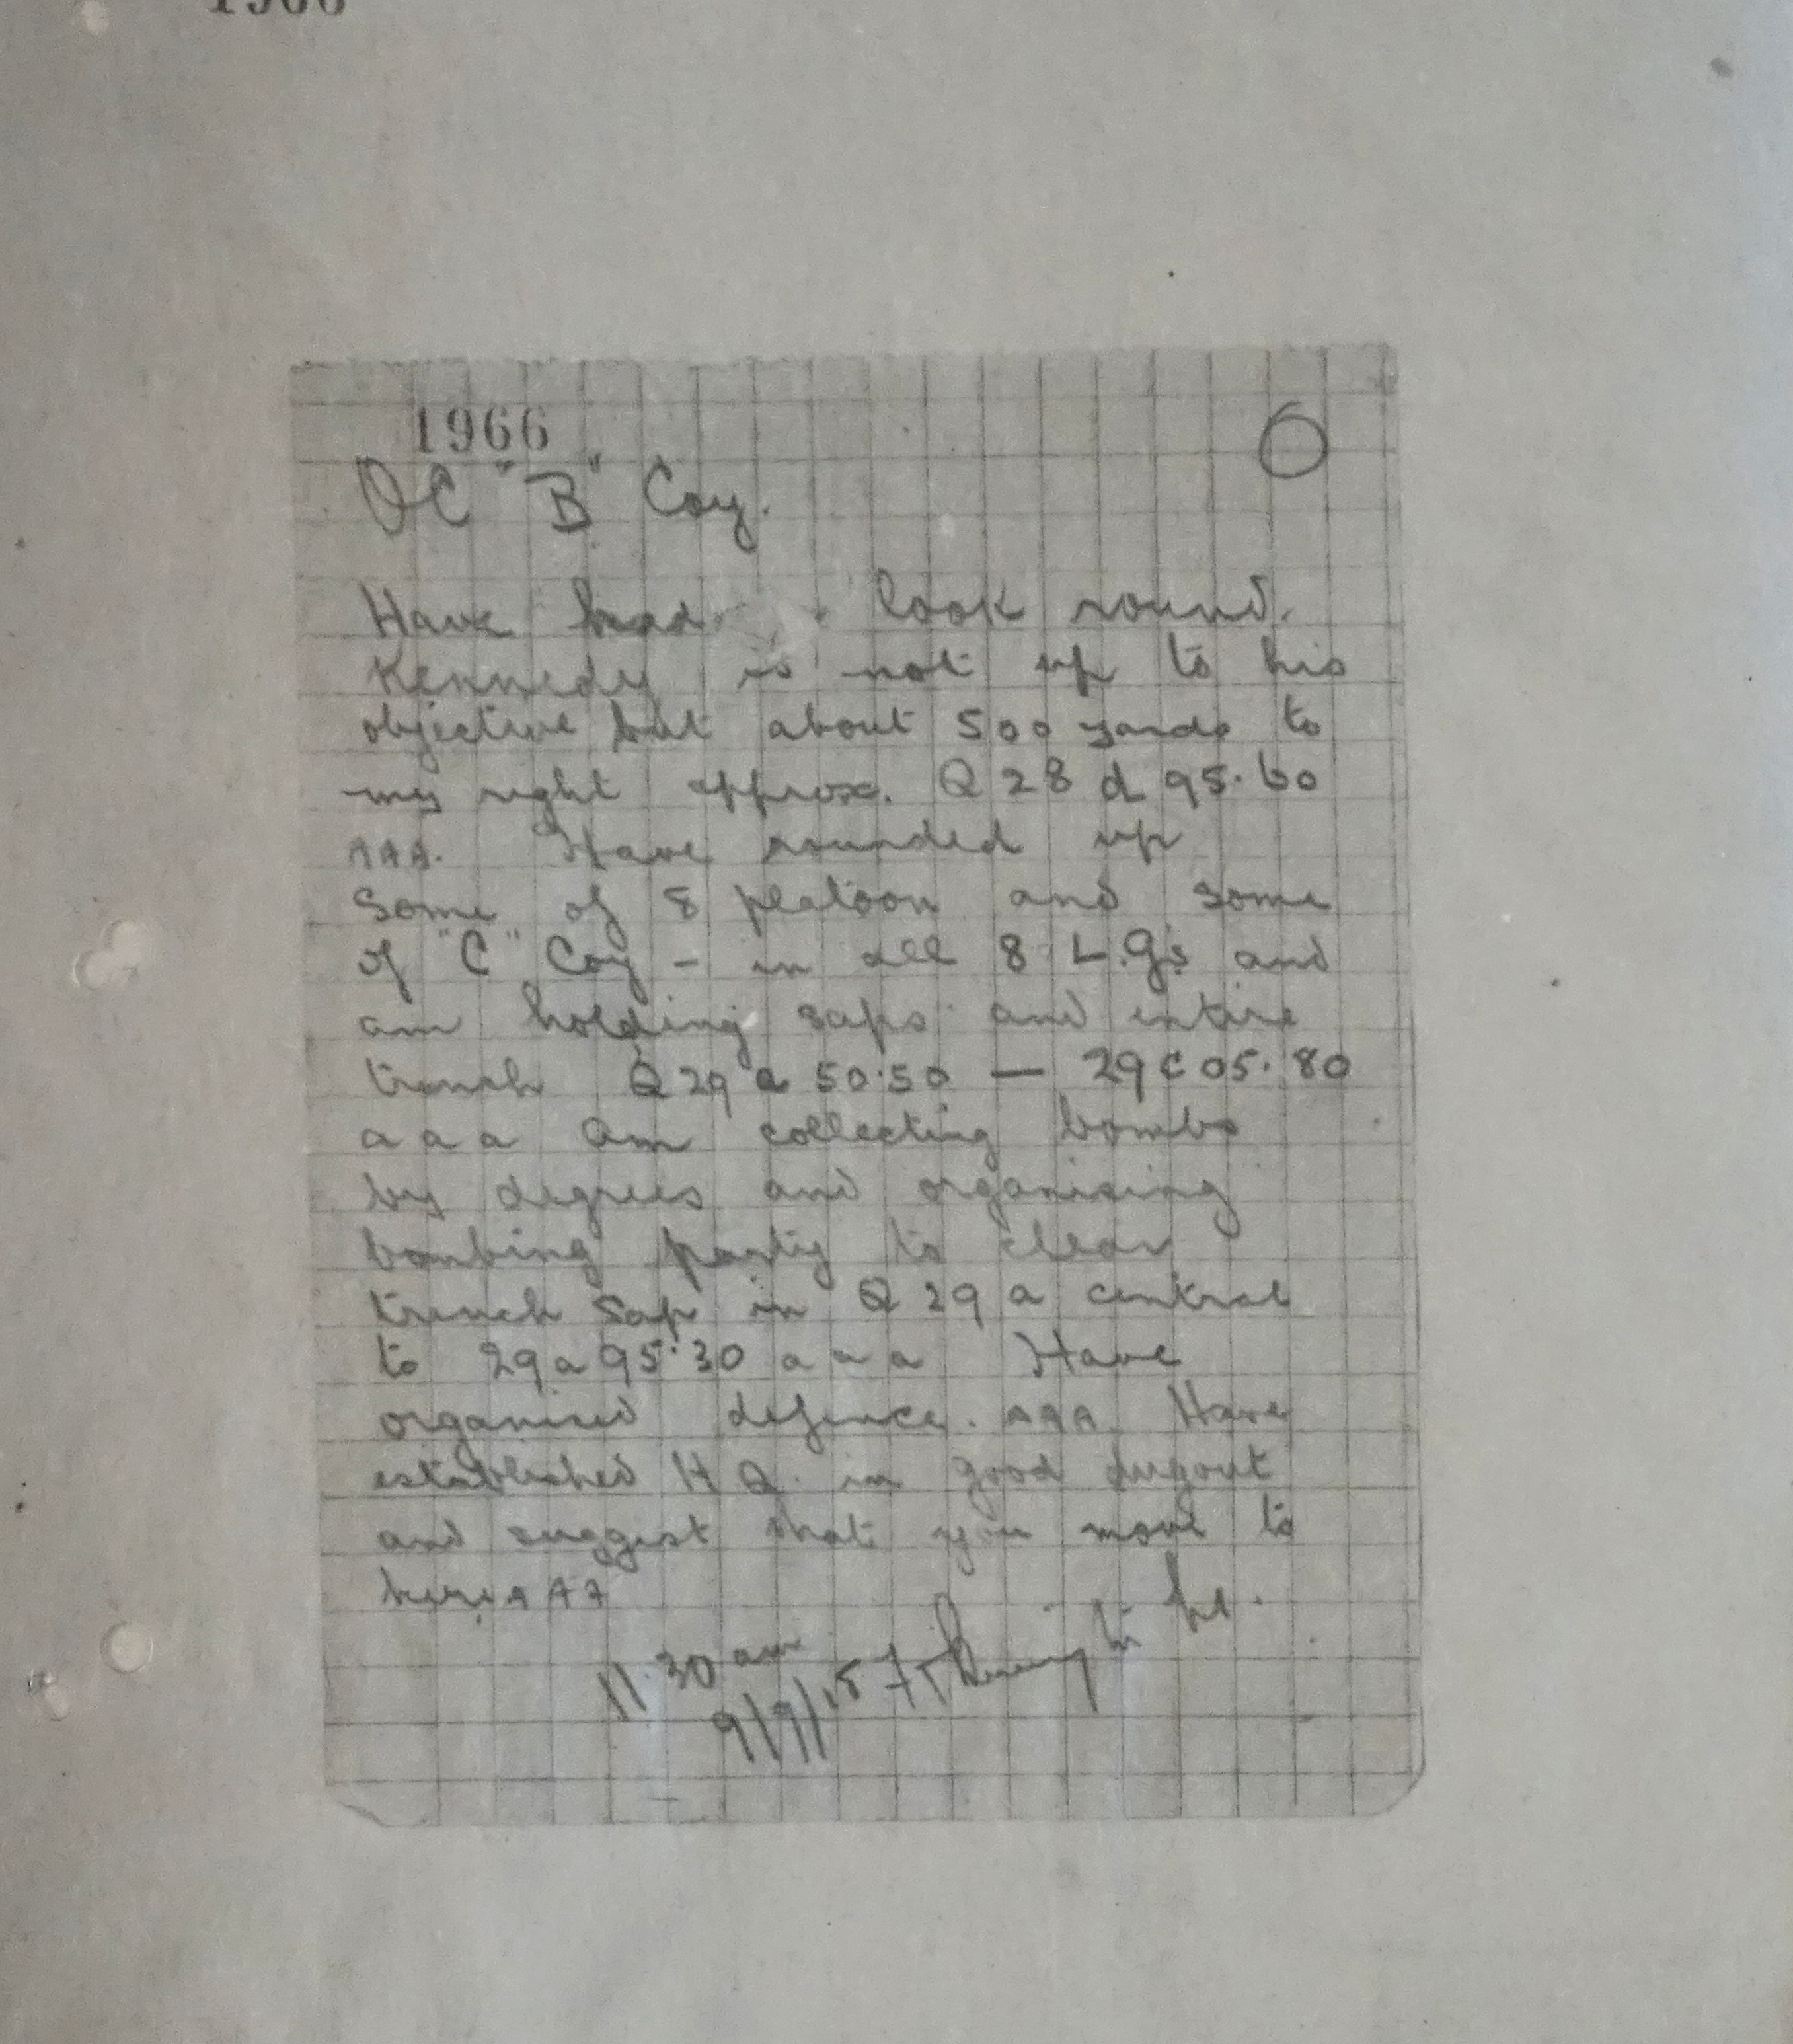 1966
1966
6
OC "B" Coy.
Have had look round.
Kennedy is not up to his
objective but about 500 yards to
my right approx. Q 28 d 95.60
AAA. Have rounded up
some of 8 platoon and some
of "C" Coy - in all 8 L.Gs and
am holding saps and entire
trench Q 29 a 50.50 — 29 c 05.80
a a a Am collecting bombs
by degrees and organising
bombing party to clear
trench sap in Q 29 a central
to 29 a 95.30 a a a Have
organised defence. AAA Have
established HQ in good dugout
and suggest that you move to
here AAA
11.30 am
9/9/18